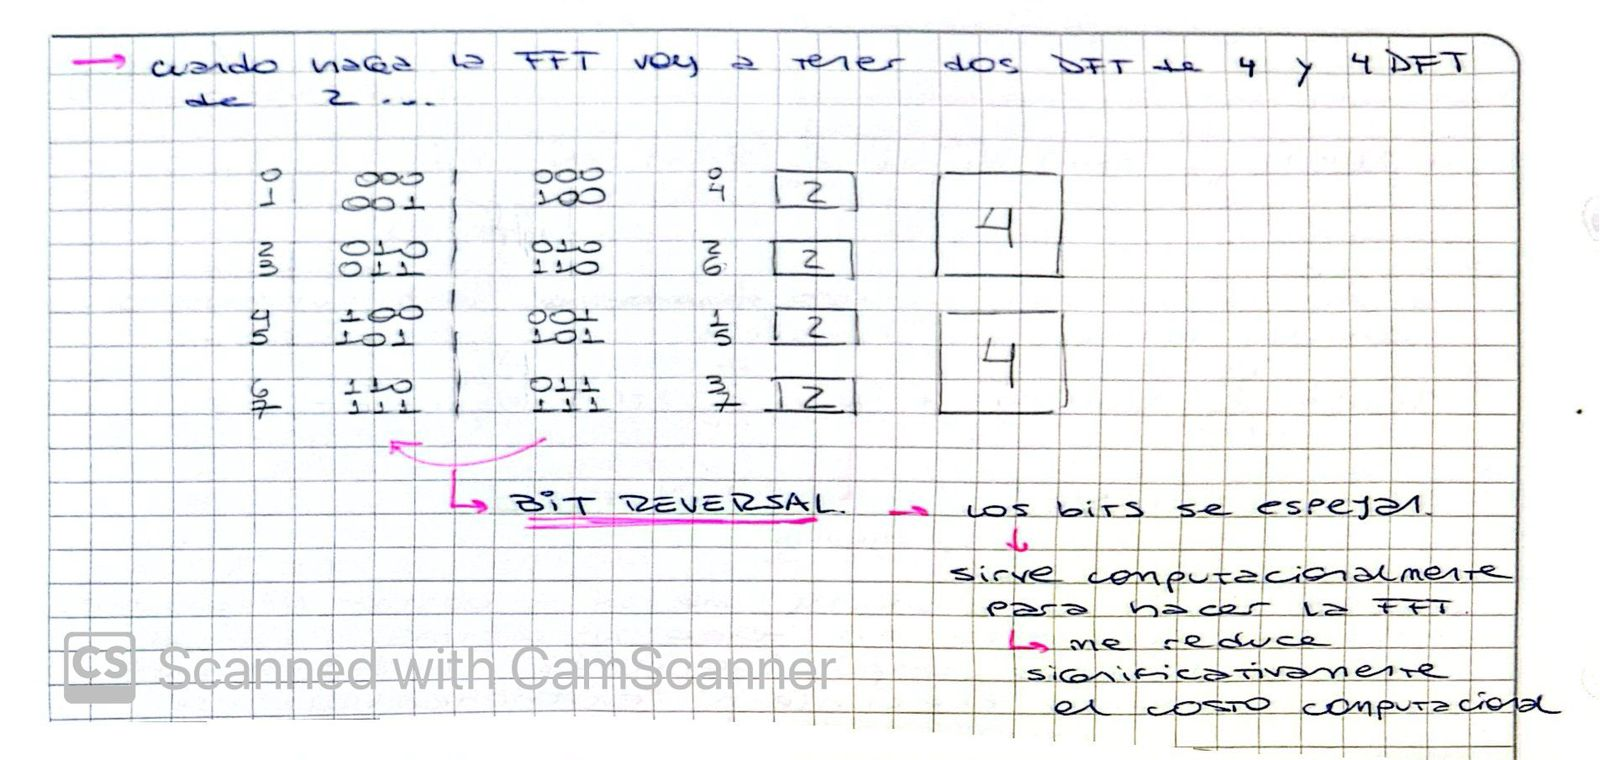 → cuando haga la FFT voy a tener dos DFT de 4 y 4 DFT
de 2 ...
0 000 | 000 0 2
1 001 | 100 4
4
2 010 | 010 2 2
3 011 | 110 6
4 100 | 001 1 2
5 101 | 101 5
4
6 110 | 011 3 2
7 111 | 111 7
↳ BIT REVERSAL. → Los bits se espejan.
↓
sirve computacionalmente
para hacer la FFT.
↳ me reduce
significativamente
el costo computacional
CS Scanned with CamScanner